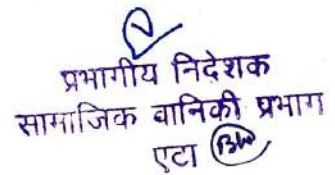 प्रभागीय निदेशक
सामाजिक वानिकी प्रभाग
एटा